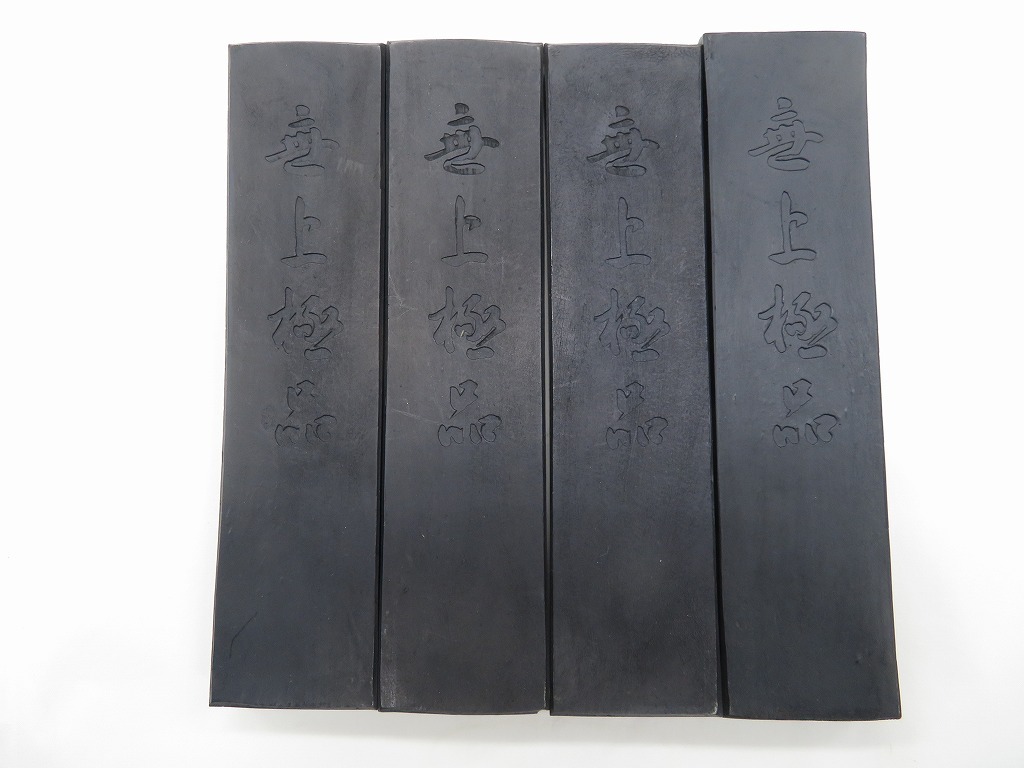 無上極品
無上極品
無上極品
無上極品